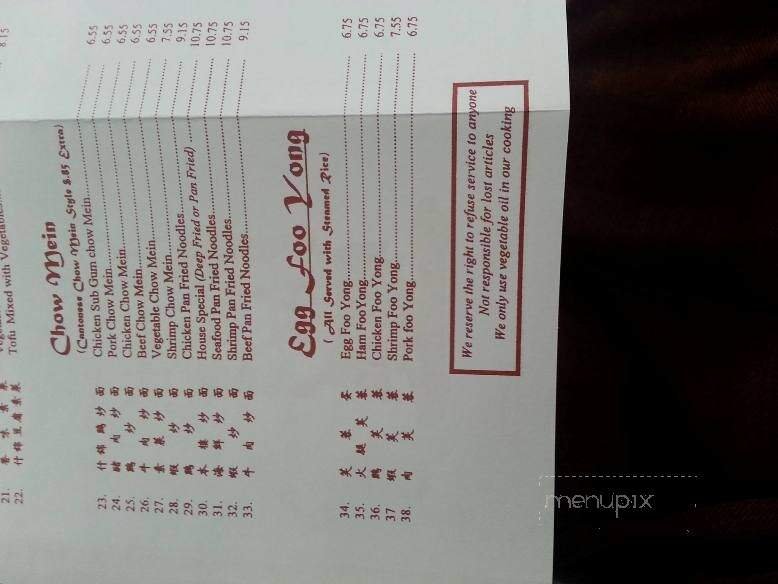 21.
8.15
22. 什錦豆腐素菜 Tofu Mixed with Vegetables
Chow Mein
(Cantonese Chow Mein Style Extra)
23. 什錦鷄炒面 Chicken Sub Gum chow Mein 6.55
24. 豬肉炒面 Pork Chow Mein 6.55
25. 鷄炒面 Chicken Chow Mein 6.55
26. 牛肉炒面 Beef Chow Mein 6.55
27. 素菜炒面 Vegetable Chow Mein 6.55
28. 蝦炒面 Shrimp Chow Mein 7.55
29. 鷄炒面 Chicken Pan Fried Noodles 9.15
30. 本樓炒面 House Special (Deep Fried or Pan Fried) 10.75
31. 海鮮炒面 Seafood Pan Fried Noodles 10.75
32. 蝦炒面 Shrimp Pan Fried Noodles 10.75
33. 牛肉炒面 Beef Pan Fried Noodles 9.15
Egg Foo Yong
( All Served with Steamed Rice)
34. 芙蓉蛋 Egg Foo Yong 6.75
35. 火腿芙蓉 Ham FooYong 6.75
36. 鷄芙蓉 Chicken Foo Yong 6.75
37 蝦芙蓉 Shrimp Foo Yong 7.55
38. 肉芙蓉 Pork foo Yong 6.75
We reserve the right to refuse service to anyone
Not responsible for lost articles
We only use vegetable oil in our cooking
menupix